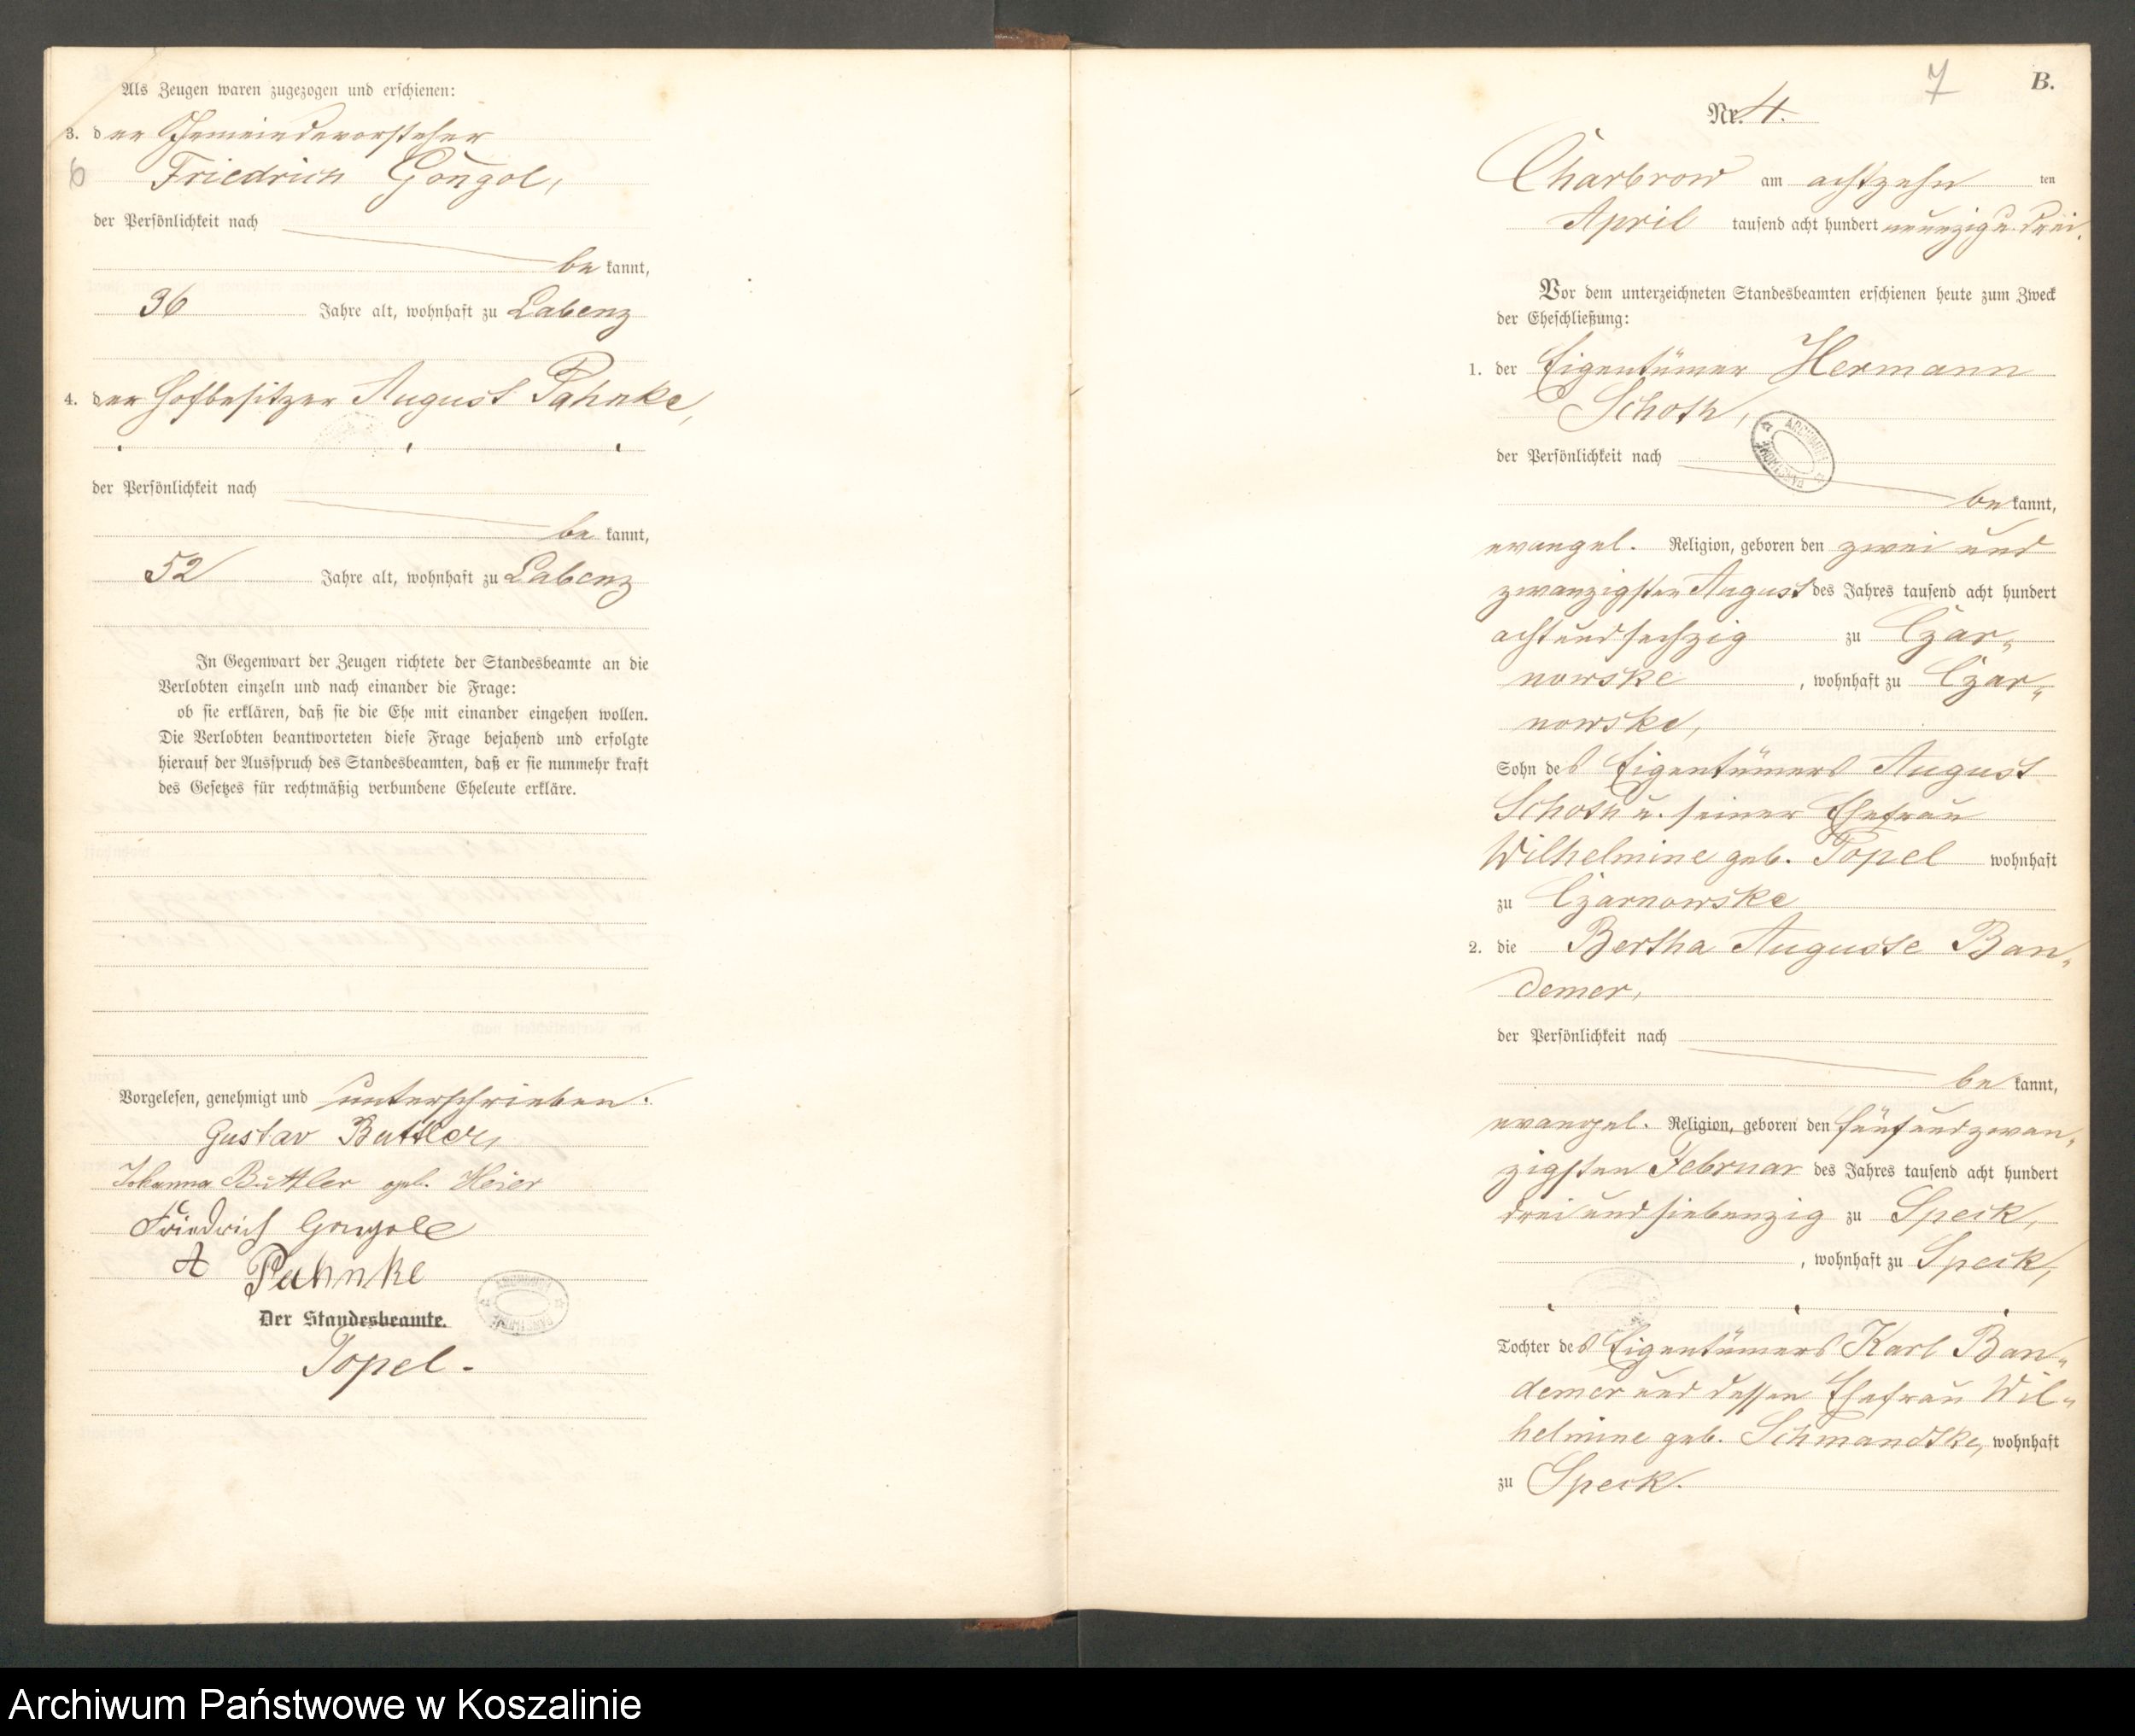 Als Zeugen waren zugezogen und erschienen:
3. der Gemeindevorsteher
6 Friedrich Gongol,
der Persönlichkeit nach
be kannt,
36 Jahre alt, wohnhaft zu Labenz
4. der Hofbesitzer August Pahnke,
der Persönlichkeit nach
be kannt,
52 Jahre alt, wohnhaft zu Labenz
In Gegenwart der Zeugen richtete der Standesbeamte an die
Verlobten einzeln und nach einander die Frage:
ob sie erklären, daß sie die Ehe mit einander eingehen wollen.
Die Verlobten beantworteten diese Frage bejahend und erfolgte
hierauf der Ausspruch des Standesbeamten, daß er sie nunmehr kraft
des Gesetzes für rechtmäßig verbundene Eheleute erkläre.
Vorgelesen, genehmigt und unterschrieben.
Gustav Buttler,
Johanna Buttler geb. Heier
Friedrich Gongoll
A Pahnke
Der Standesbeamte.
Topel.
7 B.
Nr. 4.
Charbrow am achtzehn ten
April tausend acht hundert neunzig u. drei.
Vor dem unterzeichneten Standesbeamten erschienen heute zum Zweck
der Eheschließung:
1. der Eigentümer Hermann
Schoth,
der Persönlichkeit nach
be kannt,
evangel. Religion, geboren den zwei und
zwanzigsten August des Jahres tausend acht hundert
achtundsechzig zu Czar-
nowske, wohnhaft zu Czar-
nowske,
Sohn des Eigentümers August
Schoth u. seiner Ehefrau
Wilhelmine geb. Topel wohnhaft
zu Czarnowske
2. die Bertha Auguste Ban-
demer,
der Persönlichkeit nach
be kannt,
evangel. Religion, geboren den fünfundzwan-
zigsten Februar des Jahres tausend acht hundert
dreiundsiebenzig zu Speck,
, wohnhaft zu Speck,
Tochter des Eigentümers Karl Ban-
demer und dessen Ehefrau Wil-
helmine geb. Schmandtke, wohnhaft
zu Speck.
Archiwum Państwowe w Koszalinie